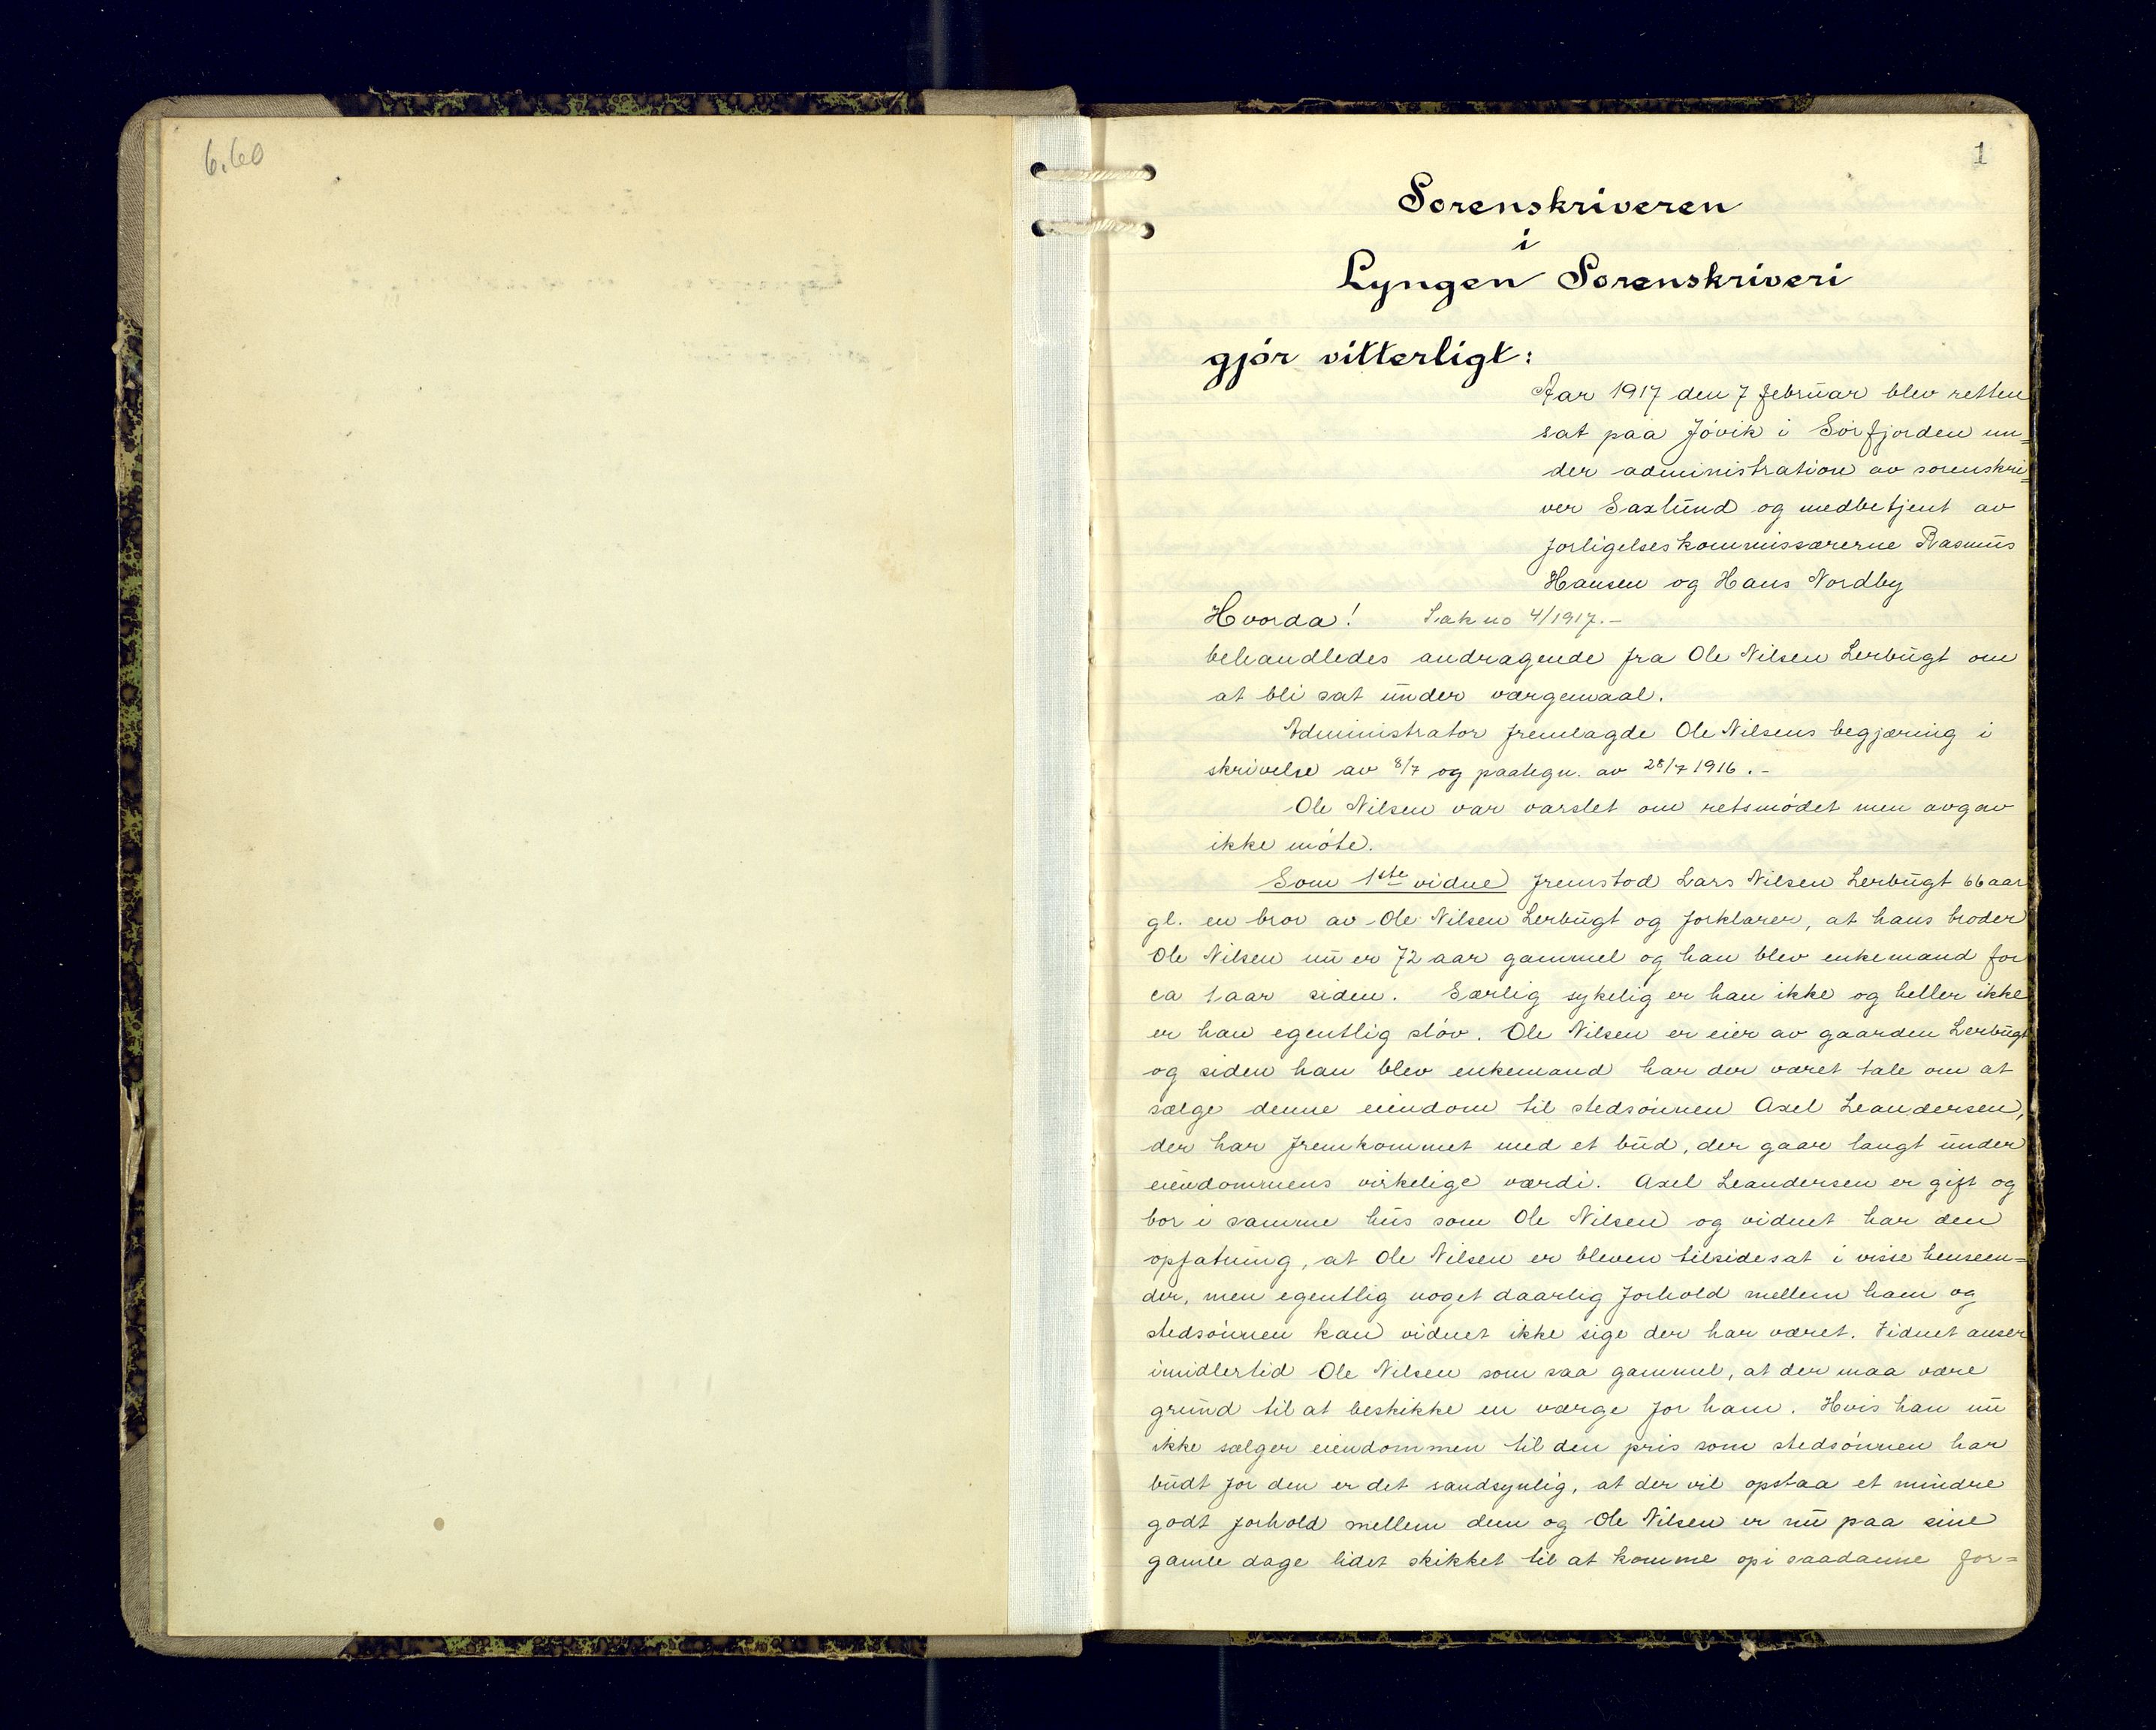 6.60
1
Sorenskriveren
i
Lyngen Sorenskriveri
gjør vitterligt:
Aar 1917 den 7 februar blev retten
sat paa Jøvik i Sørfjorden un=
der administration av sorenskri=
ver Saxlund og medbetjent av
forligelseskommissærerne Rasmus
Hansen og Hans Nordby
Hvorda! Sak no 4/1917.-
behandledes andragende fra Ole Nilsen Lerbugt om
at bli sat under værgemaal.
Administrator fremlagde Ole Nilsens begjæring i
skrivelse av 8/7 og paategn. av 28/7 1916.-
Ole Nilsen var varslet om retsmødet men avgav
ikke møte.
Som 1ste vidne fremstod Lars Nilsen Lerbugt 66 aar
gl. en bror av Ole Nilsen Lerbugt og forklarer, at hans broder
Ole Nilsen nu er 72 aar gammel og han blev enkemand for
ca 1 aar siden. Særlig sykelig er han ikke og heller ikke
er han egentlig sløv. Ole Nilsen er eier av gaarden Lerbugt
og siden han blev enkemand har der været tale om at
sælge denne eiendom til stedsønnen Axel Leandersen,
der har fremkommet med et bud, der gaar langt under
eiendommens virkelige værdi. Axel Leandersen er gift og
bor i samme hus som Ole Nilsen og vidnet har den
opfatning, at Ole Nilsen er bleven tilsidesat i visse henseen=
der, men egentlig noget daarlig forhold mellem ham og
stedsønnen kan vidnet ikke sige der har været. Vidnet anser
imidlertid Ole Nilsen som saa gammel, at der maa være
grund til at beskikke en værge for ham. Hvis han nu
ikke sælger eiendommen til den pris som stedsønnen har
budt for den er det sandsynlig, at der vil opstaa et mindre
godt forhold mellem dem og Ole Nilsen er nu paa sine
gamle dage lidet skikket til at komme op i saadanne for=